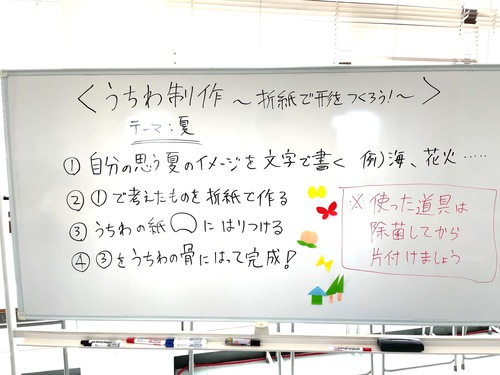 ＜うちわ制作～折紙で形をつくろう！～＞
テーマ：夏
① 自分の思う夏のイメージを文字で書く 例）海、花火……
② ①で考えたものを折紙で作る
③ うちわの紙にはりつける
④ ③をうちわの骨にはって完成！
※使った道具は
除菌してから
片付けましょう